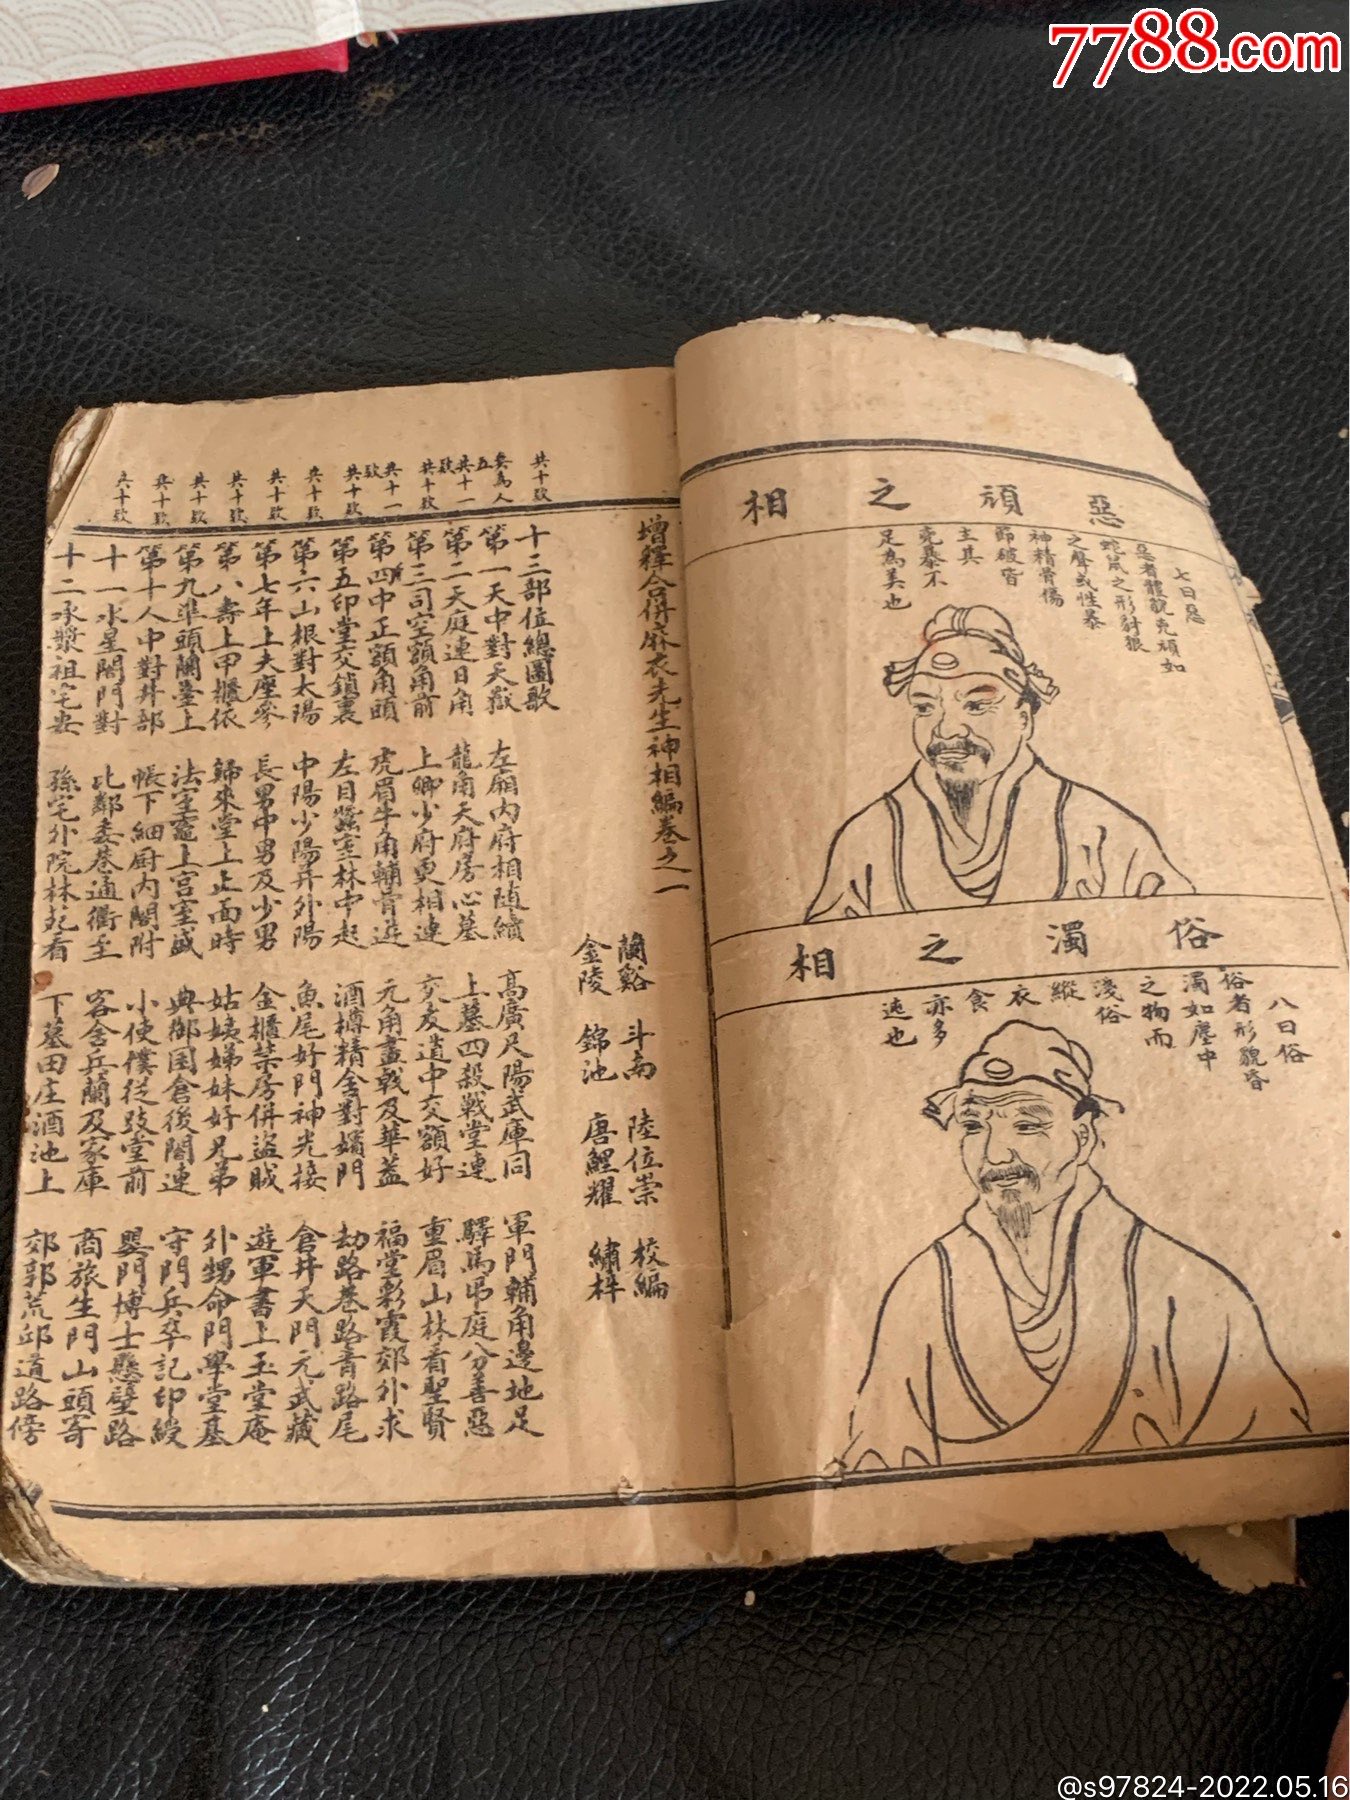 7788.com
惡頑之相
七曰惡
惡者體貌兇頑如
蛇鼠之形豺狼
之聲或性暴
神精骨傷
節破皆
主其
兇暴不
足為美也
俗濁之相
八曰俗
俗者形貌昏
濁如塵中
之物而
淺俗
縱
衣
食
亦多
迍也
增釋合併麻衣先生神相編卷之一
蘭谿 斗南 陸位崇 校編
金陵 錦池 唐鯉耀 繡梓
十三部位總圖歌
第一天中對天嶽 左廂內府相随續 高廣尺陽武庫同 軍門輔角邊地足
第二天庭連日角 龍角天府房心墓 上墓四殺戰堂連 驛馬弔庭分善惡
第三司空額角前 上卿少府更相連 交友道中交額好 重眉山林看聖賢
第四中正額角頭 虎眉牛角輔骨遊 元角畫戟及華蓋 福堂彩霞郊外求
第五印堂交鎖裏 左目蠶室林中起 酒樽精舍對嬪門 劫路巷路青路尾
第六山根對太陽 中陽少陽并外陽 魚尾好門神光接 倉井天門元武藏
第七年上夫座參 長男中男及少男 金櫃禁房併盜賊 遊軍書上玉堂庵
第八壽上甲櫃依 歸來堂上正面時 姑姨娣妹好兄弟 外甥命門學堂基
第九準頭蘭臺上 法室竈上宮室盛 典御囯倉後閣連 守門兵卒記印綬
第十人中對井部 帳下細厨內閣附 小使僕從跂堂前 嬰門博士懸壁路
十一水星閣門對 比鄰委巷通衢至 客舍兵蘭及家庫 商旅生門山頭寄
十二承漿祖宅安 孫宅外院林苑看 下墓田庄酒池上 郊郭荒邱道路傍
共十歌
共十一
共十一
共十歌
共十歌
共十歌
共十歌
共十歌
共十歌
共十歌
@s97824-2022.05.16